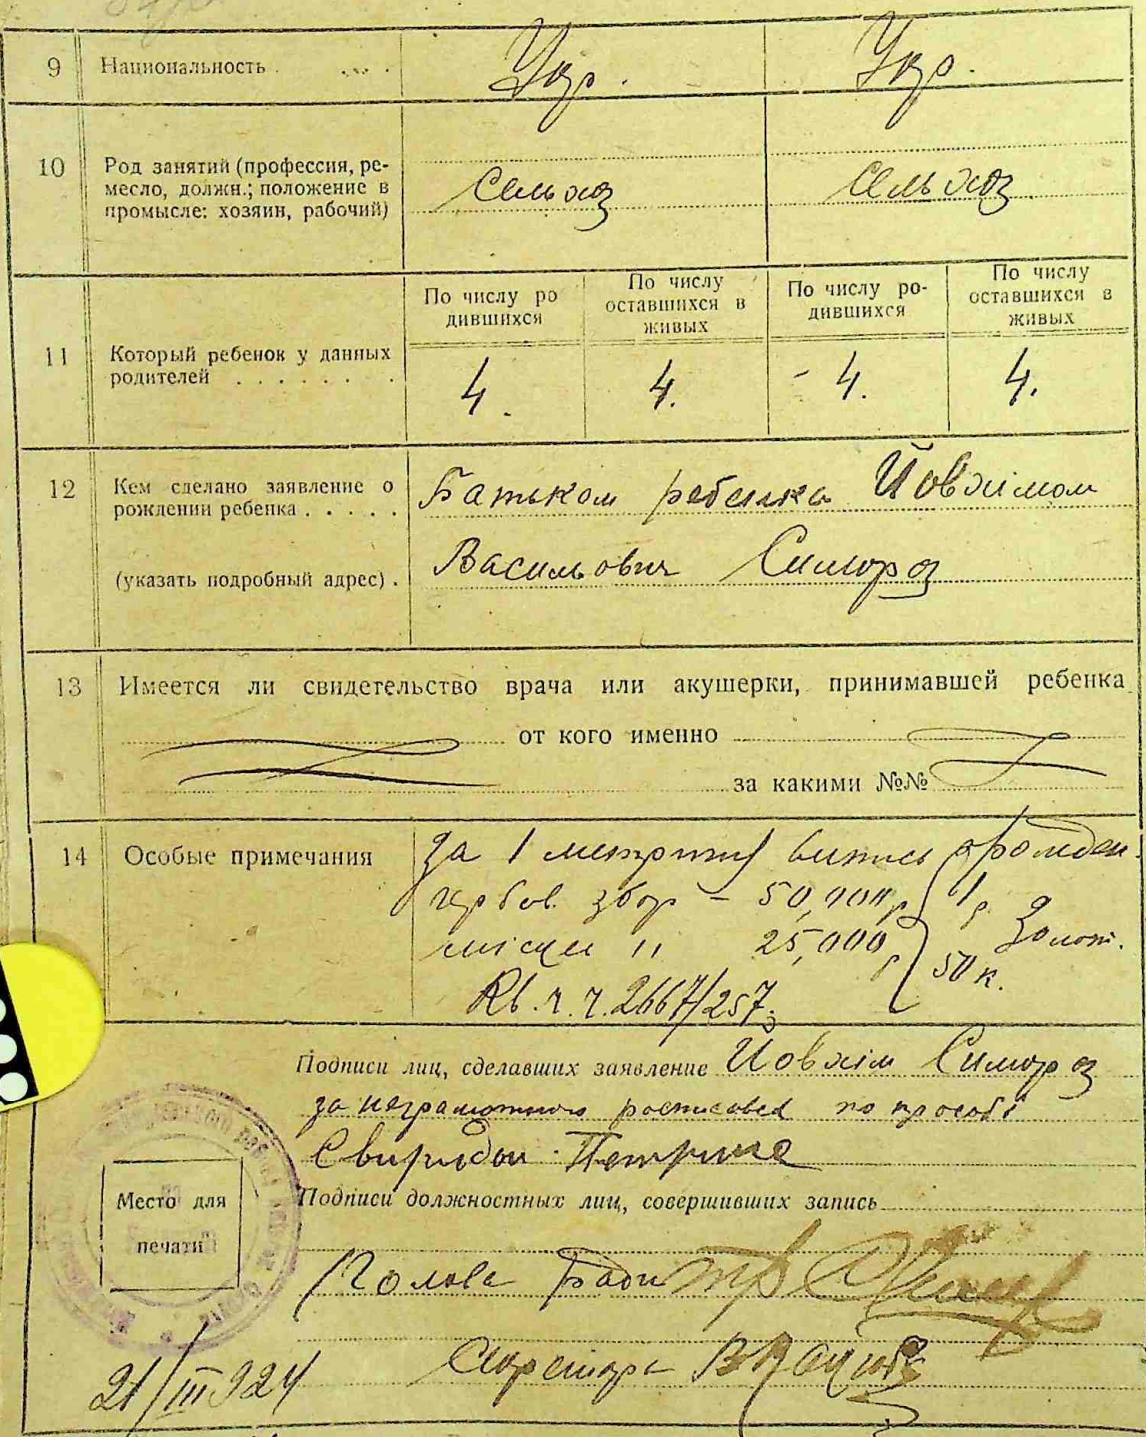 9 Национальность . ... . Укр. Укр.
10 Род занятий (профессия, ре-
месло, должн.; положение в
промысле: хозяин, рабочий)
Сельхоз Сельхоз
11 Который ребенок у данных
родителей . . . . . . .
По числу ро
дившихся
По числу
оставшихся в
живых
По числу ро-
дившихся
По числу
оставшихся в
живых
4. 4. - 4. 4.
12 Кем сделано заявление о
рождении ребенка . . . . .
(указать подробный адрес) .
Батьком ребенка Йовхимом
Васильович Симороз
13 Имеется ли свидетельство врача или акушерки, принимавшей ребенка
от кого именно
за какими №№
14 Особые примечания
За 1 метричну випись о рожден.
гербов. збор - 50,000 р 1 р. Золот.
місцев " 25,000 р 50 к.
Кв. ч. ч. 2667/257
Подписи лиц, сделавших заявление Йовхім Симороз
за неграмотного росписавсь по просьбі
Свиридон Петрише
Подписи должностных лиц, совершивших запись
Место для
печати
Голова Ради
Секретарь
21/III 924